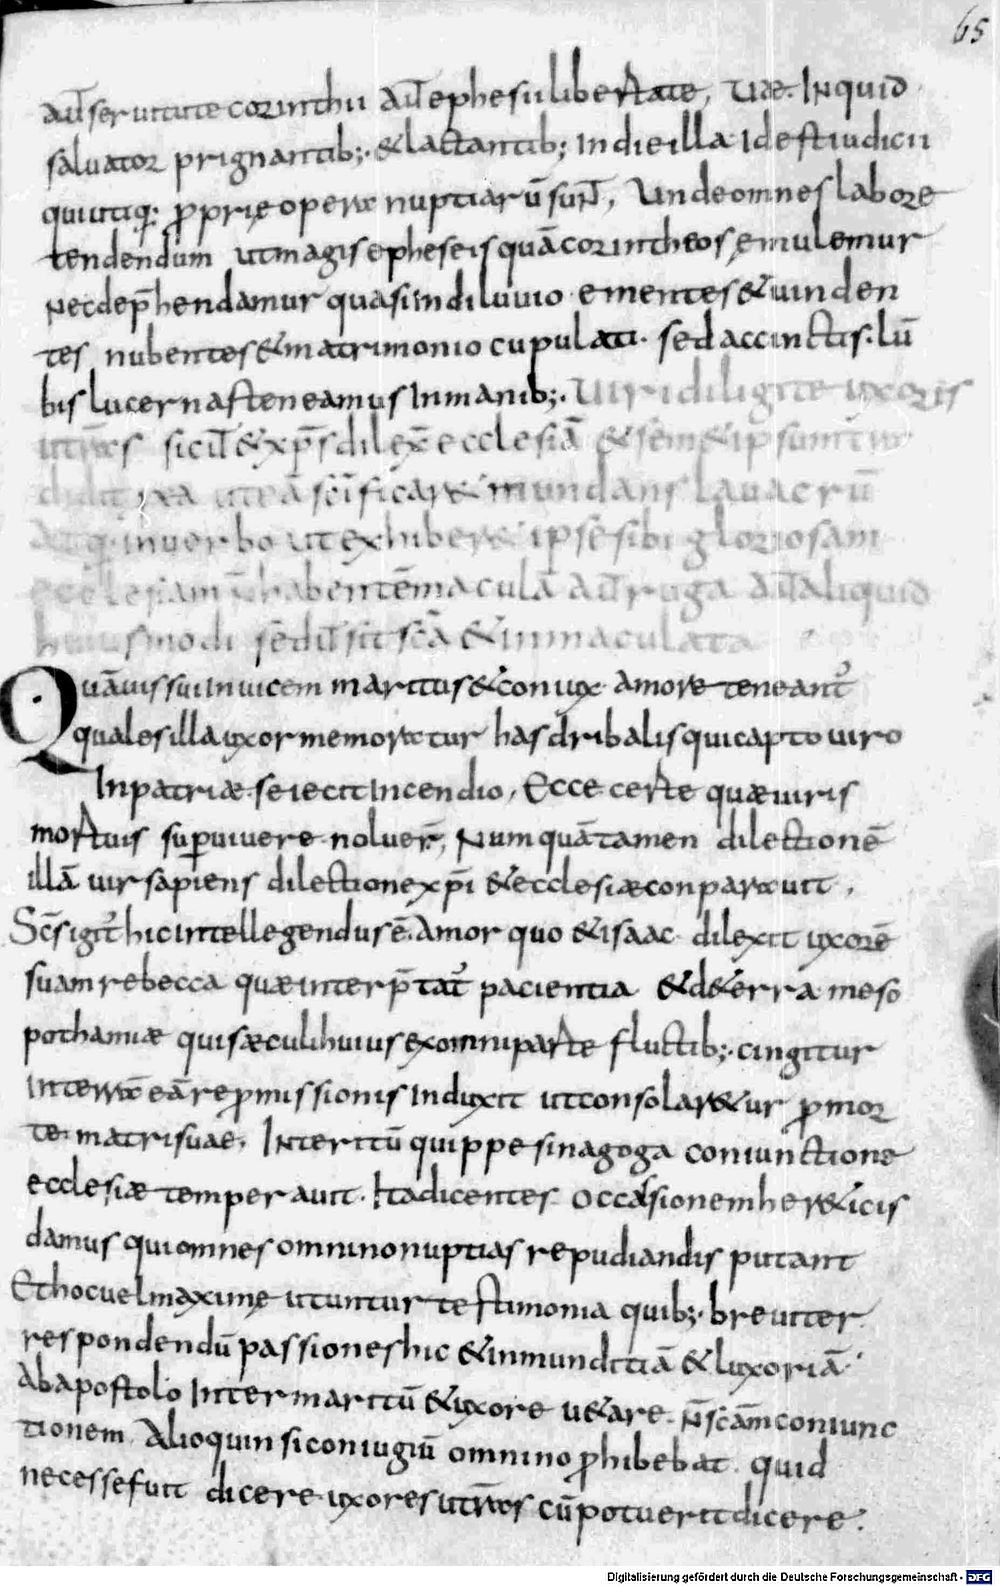 65
aut seruitute corinthii aut ephesii libertate, uae. Inquid
saluator prignantib;· & lactantib; In die illa Id est iudicii
qui utiq; ꝓprię opera nuptiarū sunt, Unde omnes labore
tendendum ut magis epheseis quā corintheos ęmulemur
Nec dep̄hendamur quasi In diluuio ementes & uinden
tes nubentes & matrimonio cupulati· sed accinctis· lū
bis lucernas teneamus In manib;· Uiri diligite uxoris
uestras sicut & xp̄s dilex̄ ecclesiā & semetip̄sum tra
didit ꝓ ea ut eā sc̄ificaret mundans lauacrū
Atq; in uerbo ut exhiberet ipse sibi gloriosam
ecclesiam n̄ habentēmaculā aut ruga aut aliquid
huiusmodi sed ut sit sc̄a & inmaculata
Quāuis sui inuicem maritus & coniux amore teneant᷒
quales illa uxor memoratur hasdribalis qui capto uiro
In patriæ se iecit Incendio, Ecce certe quæ uiris
mortuis suꝑuiuere noluer̄, Numquā tamen dilectionē
illā uir sapiens dilectione xp̄i & ecclesiæ conparauit,
Sc̄s igit᷒ hic intellegendus ē Amor quo & isaac dilexit uxorē
suam rebecca quæ interp̄tat᷒ pacientia & de terra meso
pothamiæ qui sæculi huius ex omni parte fluctib;· cingitur
In terra eā repmissionis Induxit ut consolaretur ꝓ mor
te matris uae, Interitū quippe sinagoga coniunctione
ecclesiæ temperauit· Ita dicentes occasionem hereticis
damus qui omnes omnino nuptias repudiandis putant
Et hoc uel maximę utuntur testimonia quib;· breuiter
respondendū passiones hic & inmunditiā & luxoriā·
Ab apostolo Inter maritū & uxore uetare· n̄ sc̄am coniunc
tionem Alioquin si coniugiū omnino ꝓhibebat quid
necesse fuit dicere uxores uestras cū potuerit dicere·
Digitalisierung gefördert durch die Deutsche Forschungsgemeinschaft - DFG